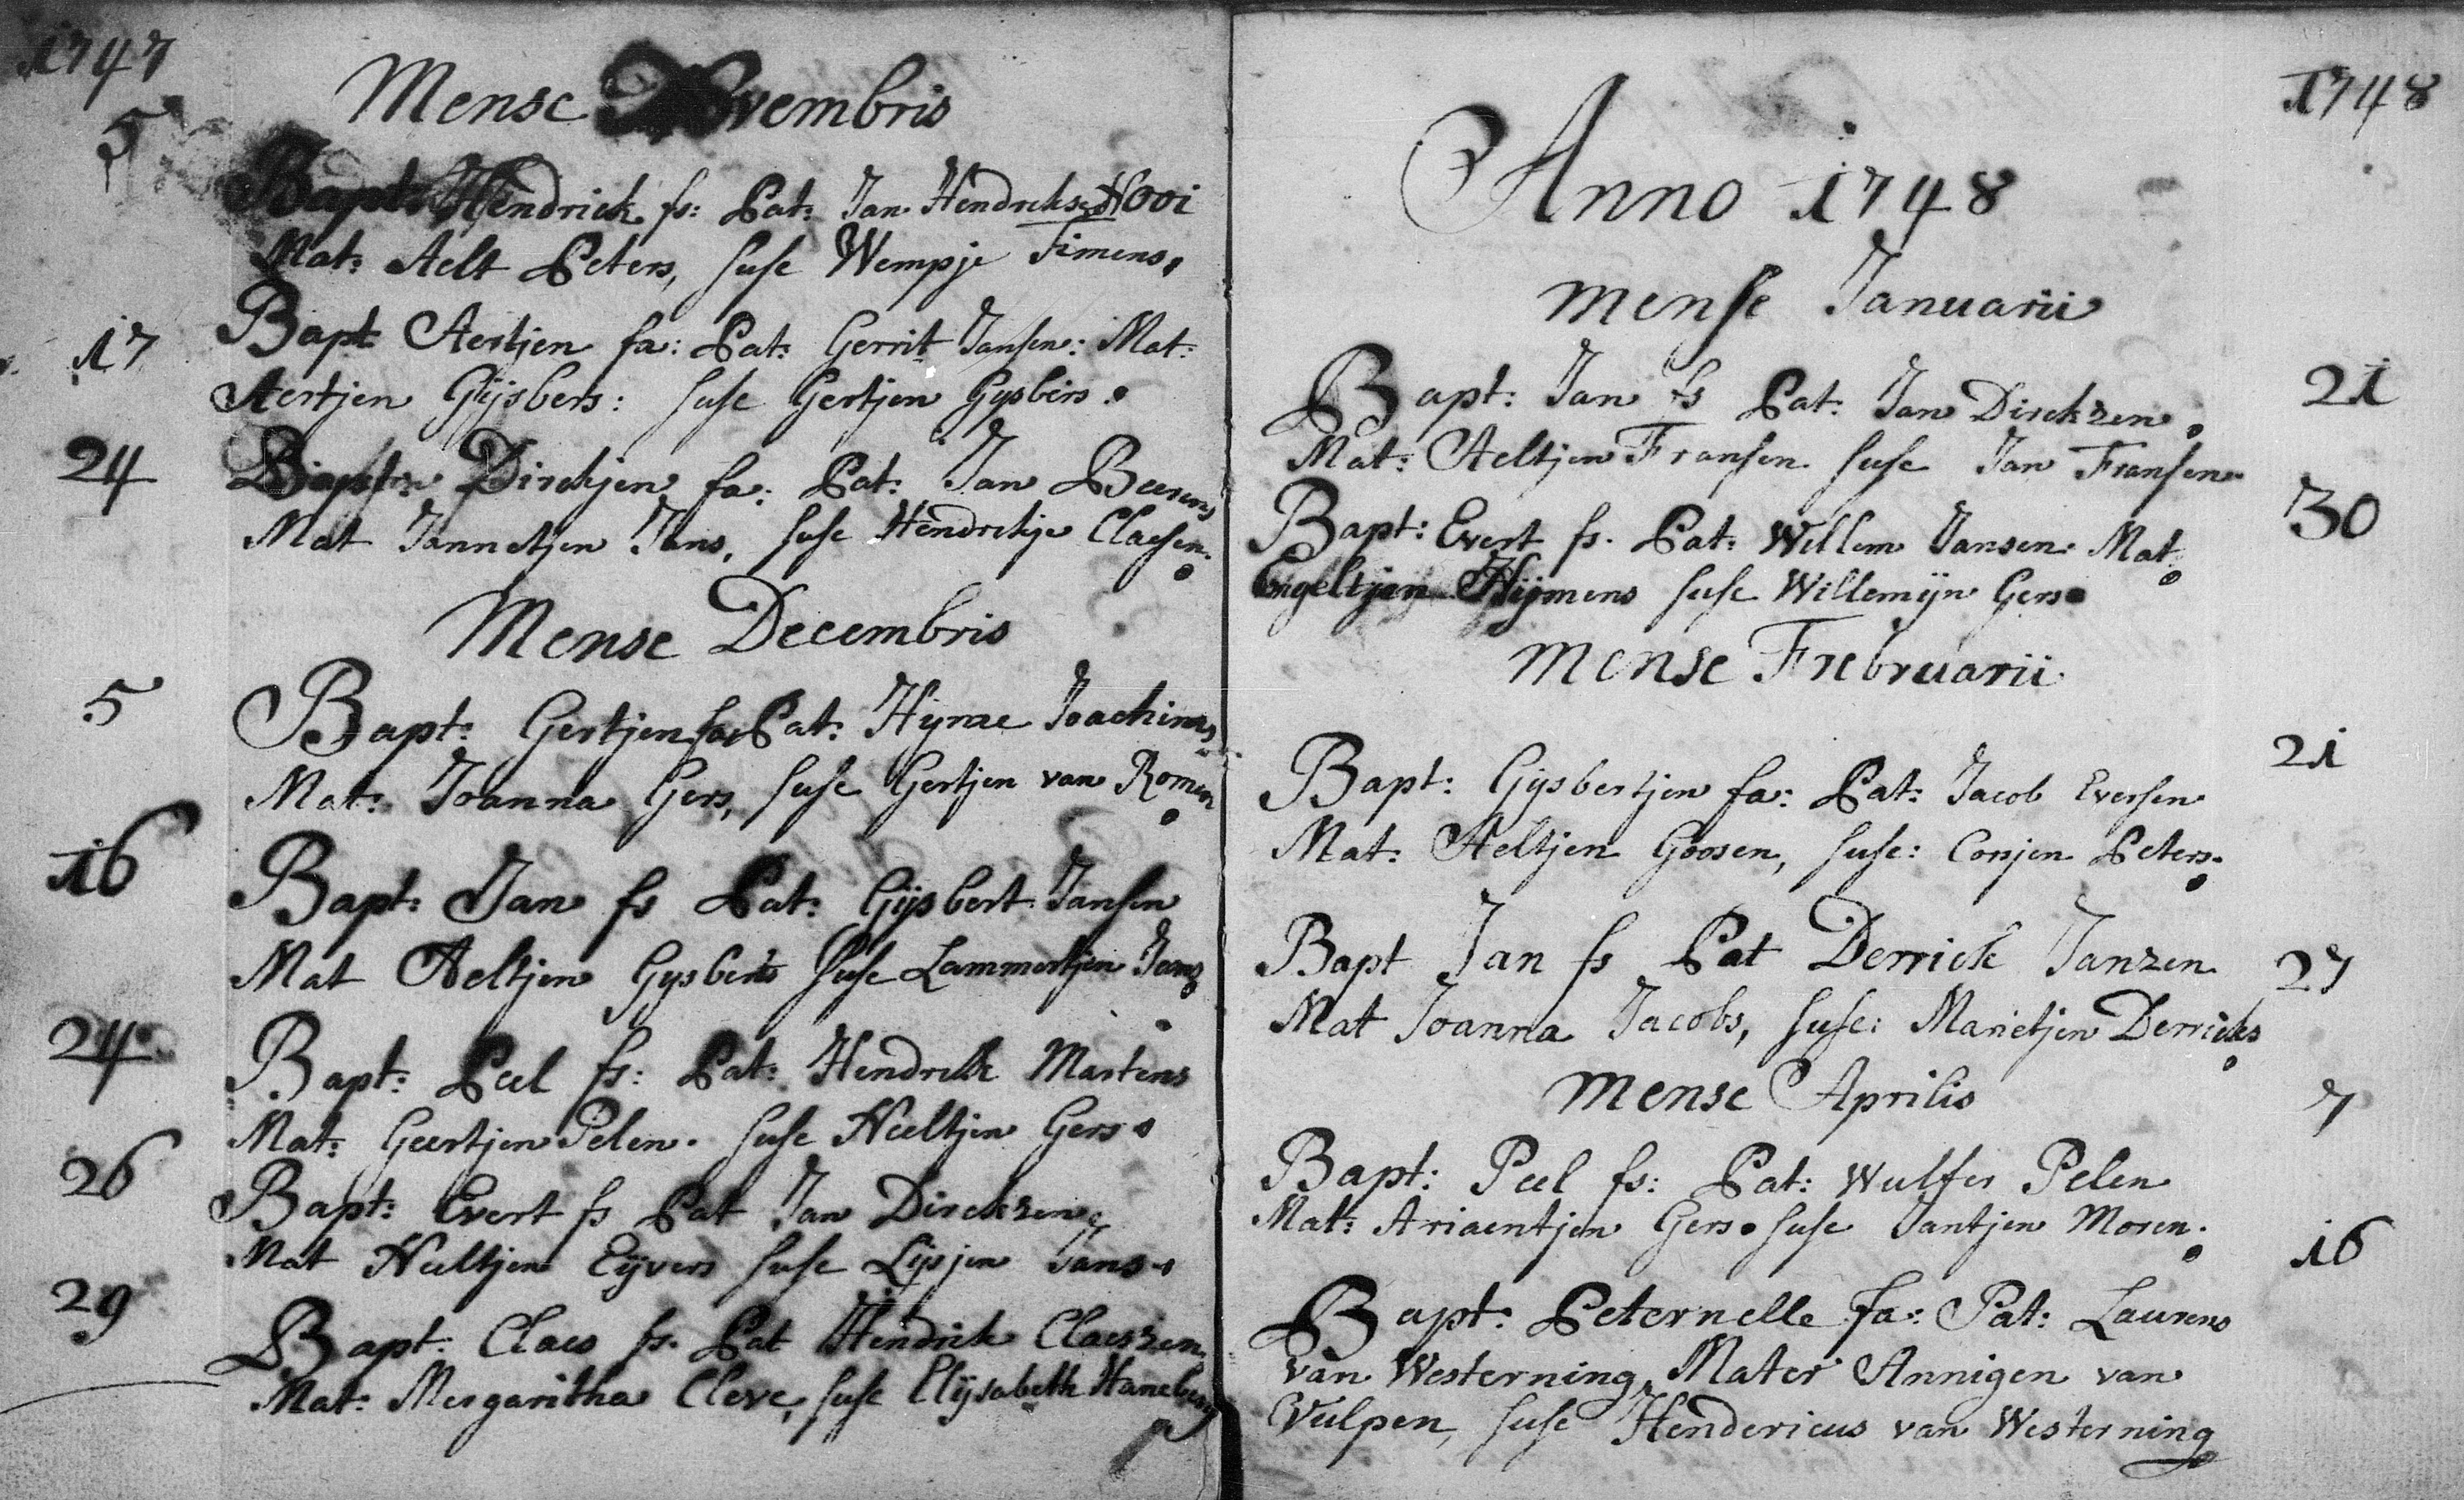 1747
Mense Novembris
5
Bapt: Hendrick fs: Pat: Jan Hendrickse Hooi
Mat: Aelt Peters, suse Wempje Timens.
17
Bapt Aertjen fa: Pat: Gerrit Jansen: Mat:
Aertjen Gijsbers: suse Gertjen Gysbers.
24
Bapt: Dirckjen fa: Pat: Jan Beerens
Mat Jannetjen Jans, suse Hendrikje Claesen.
Mense Decembris
5
Bapt: Gertjen fa: Pat: Hijmae Joachims
Mat: Joanna Gers, suse Gertjen van Romen
16
Bapt: Jan fs Pat: Gijsbert Jansen
Mat Aeltjen Gysberts suse Lammertjen Jans
24
Bapt: Peel fs: Pat: Hendrik Martens
Mat: Geertjen Pelen. suse Neeltjen Gers.
26
Bapt: Evert fs Pat Jan Dirckzen.
Mat Neeltjen Eijvers suse Lijsjen Jans.
29
Bapt: Claes fs. Pat Hendrick Claeszen.
Mat: Mergaritha Cleve, suse Elijsabeth Haneberg
1748
Anno 1748
mense Januarii
21
Bapt: Jan fs Pat: Jan Dirckzen.
Mat: Aeltjen Fransen suse Jan Fransen
30
Bapt: Evert fs. Pat: Willem Jansen Mat.
Engeltjen Hijmens suse Willemijn Gers.
mense Frebruarii
21
Bapt: Gijsbertjen fa: Pat: Jacob Eversen
Mat: Aeltjen Goosen, suse: Conjen Peters.
27
Bapt Jan fs Pat Derrick Janzen
Mat Joanna Jacobs, suse: Marietjen Derricks
mense Aprilis
7
Bapt: Peel fs: Pat: Wulfer Pelen
Mat: Ariaentjen Gers. suse Jantjen Moren.
16
Bapt: Peternelle fa: Pat: Laurens
van Westerning, Mater Annigen van
Vulpen, suse Hendericus van Westerning